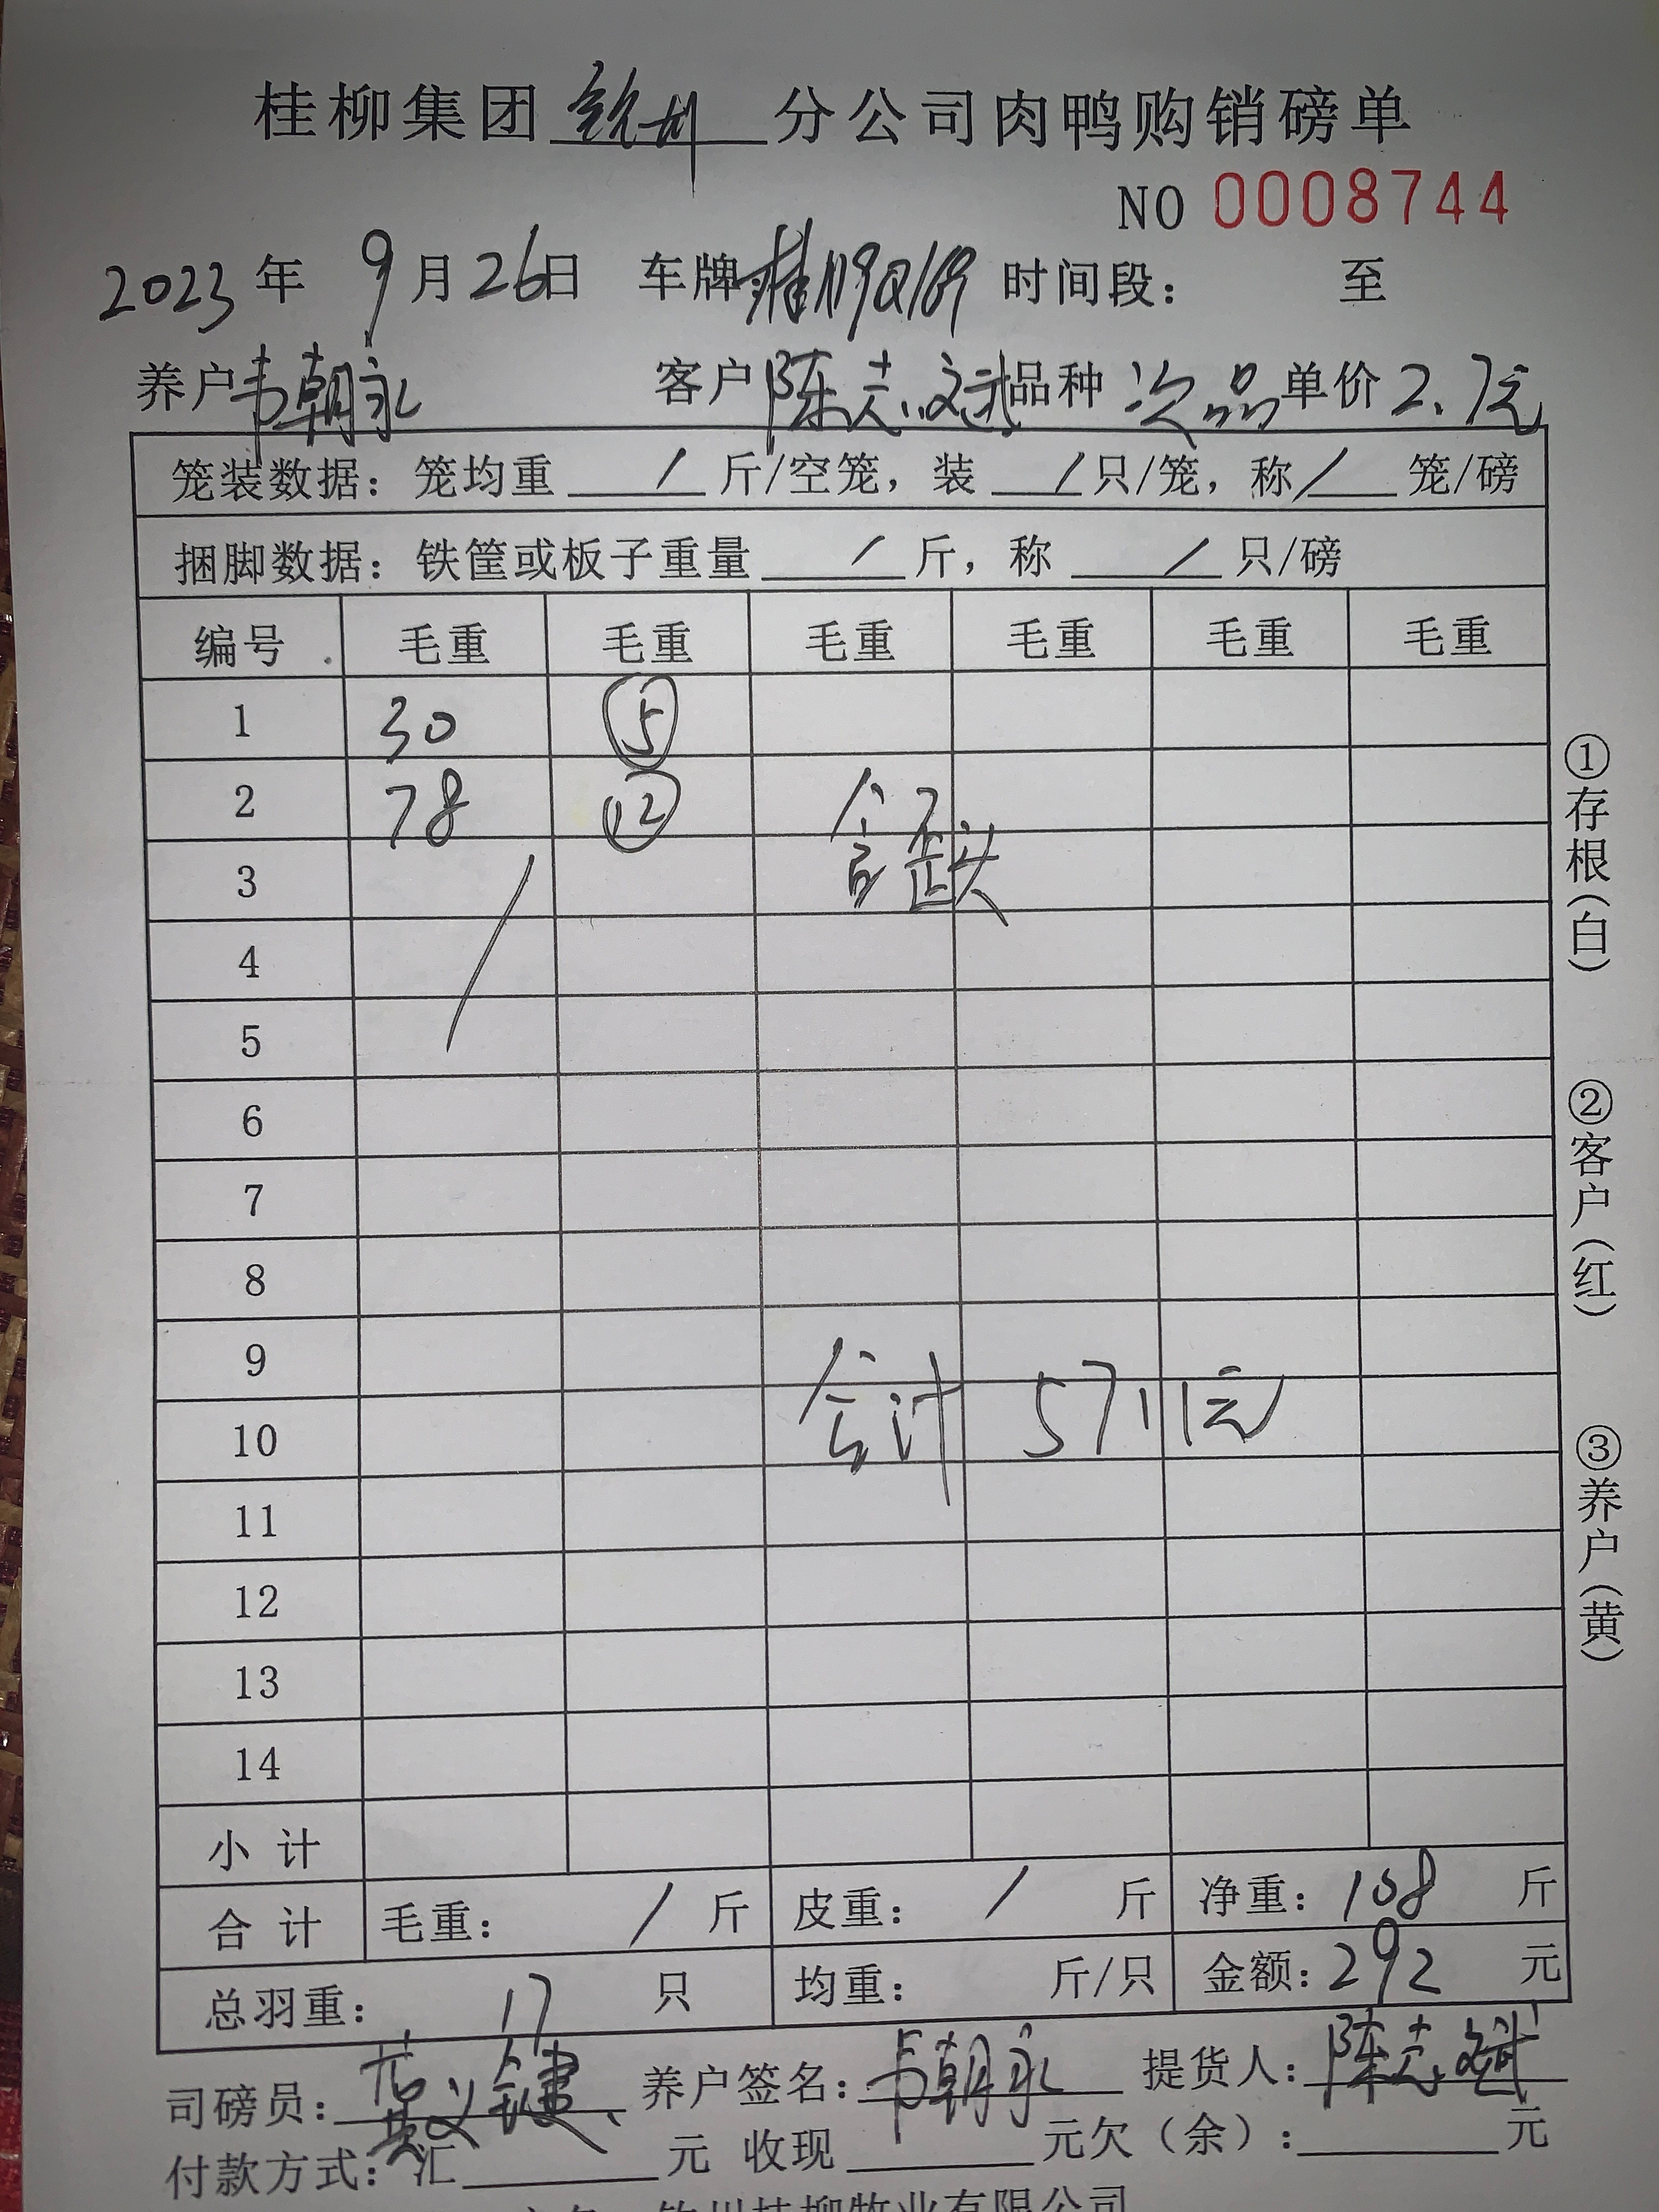 桂柳集团 钦州 分公司肉鸭购销磅单
NO 0008744
2023 年 9 月 26 日 车牌 桂 时间段： 至
养户 韦朝永 客户 陈志斌 品种 次品 单价 2.7元
笼装数据：笼均重 / 斤/空笼，装 / 只/笼，称 / 笼/磅
捆脚数据：铁筐或板子重量 / 斤，称 / 只/磅
编号 毛重 毛重 毛重 毛重 毛重 毛重
1 30 ⑤
2 78 ⑫
3 含歪头
4
5
6
7
8
9
10 合计 571元
11
12
13
14
小 计
合 计 毛重： / 斤 皮重： / 斤 净重：108 斤
总羽重： 17 只 均重： 斤/只 金额：292 元
司磅员：黄义键 养户签名：韦朝永 提货人：陈志斌
付款方式：汇 元 收现 元欠（余）： 元
钦州桂柳牧业有限公司
①存根（白）
②客户（红）
③养户（黄）